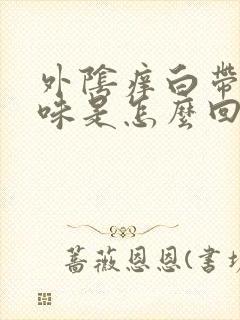 外陰痒白帶
味是怎麼回
薔薇恩恩(書坊